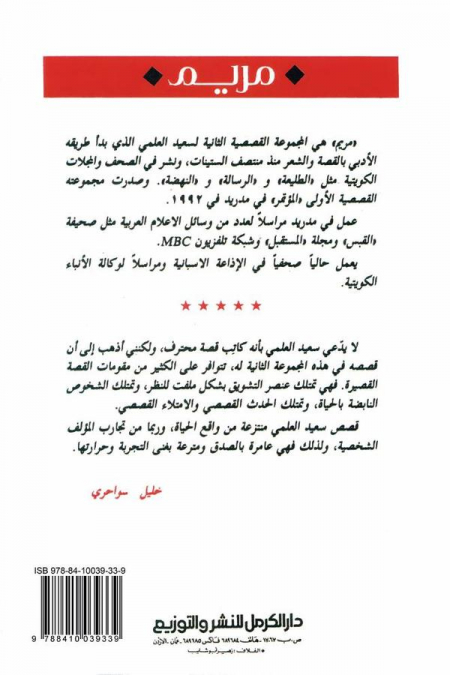 مريم
«مريم» هي المجموعة القصصية الثانية لسعيد العلمي الذي بدأ طريقه
الأدبي بالقصة والشعر منذ منتصف الستينات، ونشر في الصحف والمجلات
الكويتية مثل «الطليعة» و «الرسالة» و «النهضة». وصدرت مجموعته
القصصية الأولى «المؤتمر» في مدريد في ١٩٩٢.
عمل في مدريد مراسلاً لعدد من وسائل الاعلام العربية مثل صحيفة
«القبس» ومجلة «المستقبل» وشبكة تلفزيون MBC.
يعمل حالياً صحفياً في الإذاعة الاسبانية ومراسلاً لوكالة الأنباء
الكويتية.
★ ★ ★ ★ ★
لا يدّعي سعيد العلمي بأنه كاتب قصة محترف، ولكنني أذهب إلى أن
قصصه في هذه المجموعة الثانية له، تتوافر على الكثير من مقومات القصة
القصيرة. فهي تمتلك عنصر التشويق بشكل ملفت للنظر، وتمتلك الشخوص
النابضة بالحياة، وتمتلك الحدث القصصي والامتلاء القصصي.
قصص سعيد العلمي منتزعة من واقع الحياة، وربما من تجارب المؤلف
الشخصية، ولذلك فهي عامرة بالصدق ومترعة بغنى التجربة وحرارتها.
خليل سواحري
ISB 978-84-10039-33-9
9 788410 039339
دار الكرمل للنشر والتوزيع
ص.ب ٧٤٦٧ هاتف ٦٨٩٦٨٤ فاكس ٦٨٩٦٨٥ عمّان - الأردن
* الغلاف: زهير أبو شايب